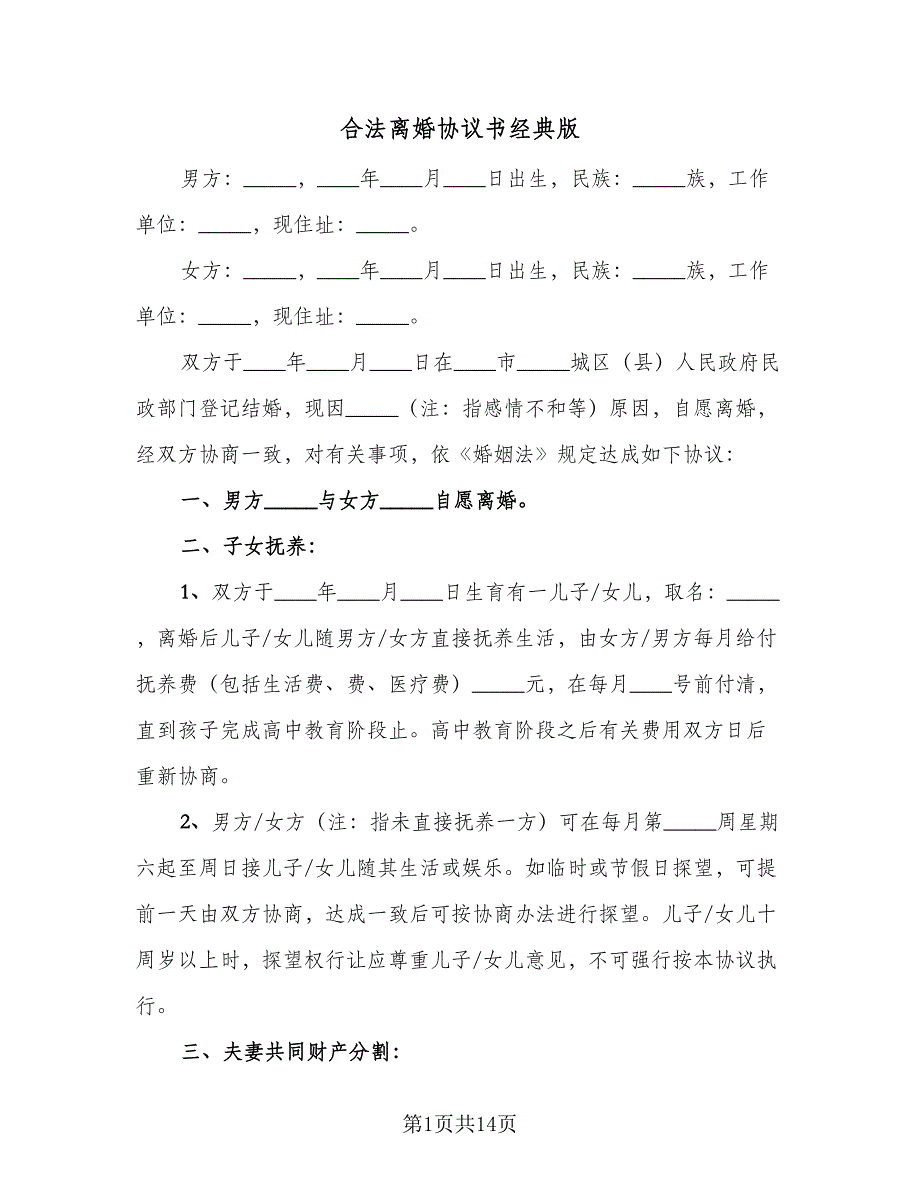 合法离婚协议书经典版
男方：_____，____年____月____日出生，民族：_____族，工作
单位：_____，现住址：_____。
女方：_____，____年____月____日出生，民族：_____族，工作
单位：_____，现住址：_____。
双方于____年____月____日在____市_____城区（县）人民政府民
政部门登记结婚，现因_____（注：指感情不和等）原因，自愿离婚，
经双方协商一致，对有关事项，依《婚姻法》规定达成如下协议：
一、男方_____与女方_____自愿离婚。
二、子女抚养：
1、双方于____年____月____日生育有一儿子/女儿，取名：_____
，离婚后儿子/女儿随男方/女方直接抚养生活，由女方/男方每月给付
抚养费（包括生活费、费、医疗费）_____元，在每月____号前付清，
直到孩子完成高中教育阶段止。高中教育阶段之后有关费用双方日后
重新协商。
2、男方/女方（注：指未直接抚养一方）可在每月第_____周星期
六起至周日接儿子/女儿随其生活或娱乐。如临时或节假日探望，可提
前一天由双方协商，达成一致后可按协商办法进行探望。儿子/女儿十
周岁以上时，探望权行让应尊重儿子/女儿意见，不可强行按本协议执
行。
三、夫妻共同财产分割：
第1页共14页